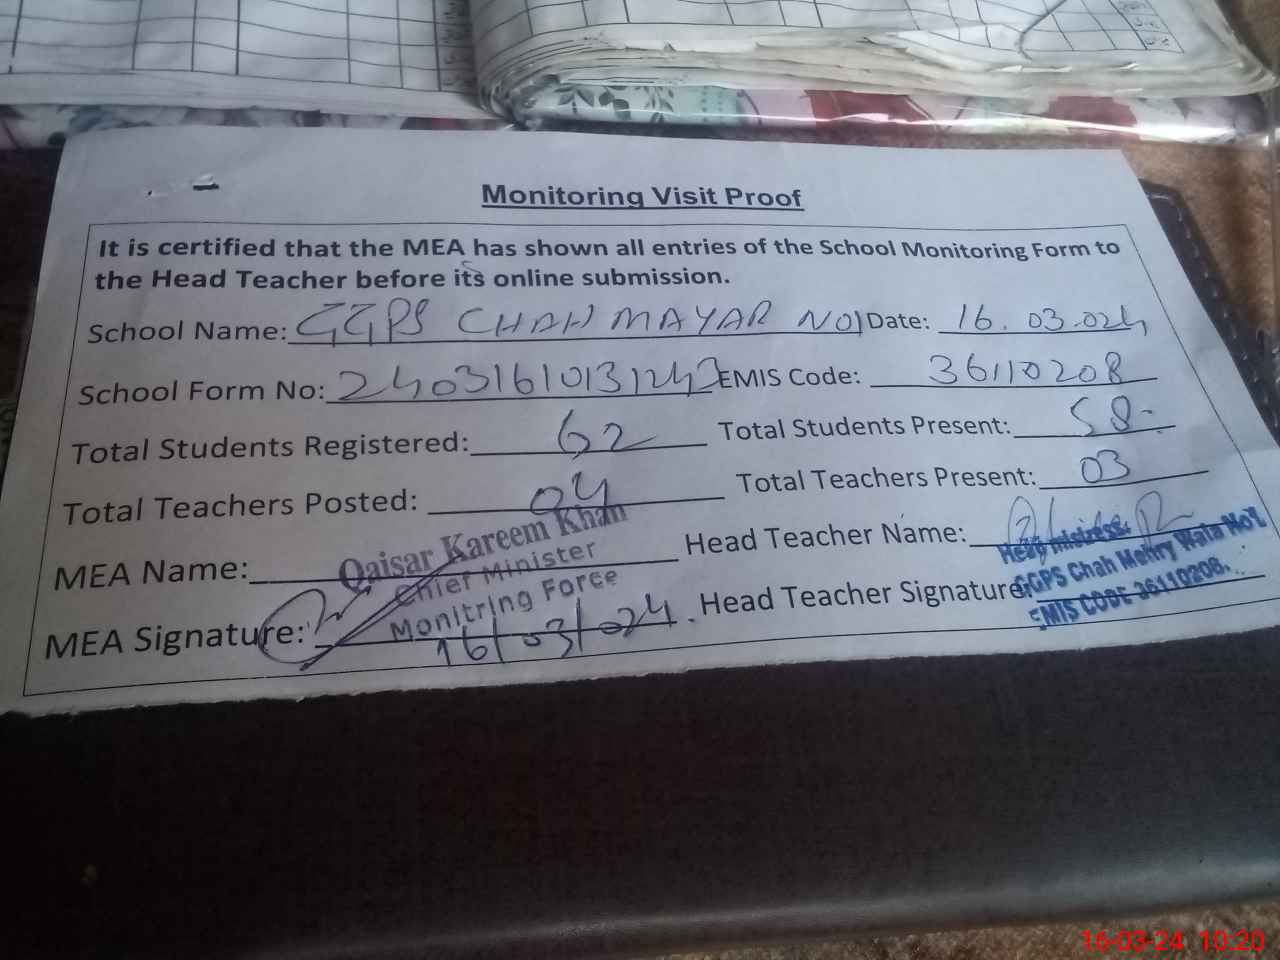 Monitoring Visit Proof
It is certified that the MEA has shown all entries of the School Monitoring Form to
the Head Teacher before its online submission.
School Name: GGPS CHAH MAYAR NO1 Date: 16.03.024
School Form No: EMIS Code: 36110208
Total Students Registered: 62 Total Students Present: 58
Total Teachers Posted: 04 Total Teachers Present: 03
MEA Name: Qaisar Kareem Khan Head Teacher Name:
Chief Minister
Monitring Force
Head mistress
GGPS Chah Mehry Wala No1
EMIS CODE 36110208
MEA Signature: 16/03/024. Head Teacher Signature:
16-03-24 10:20